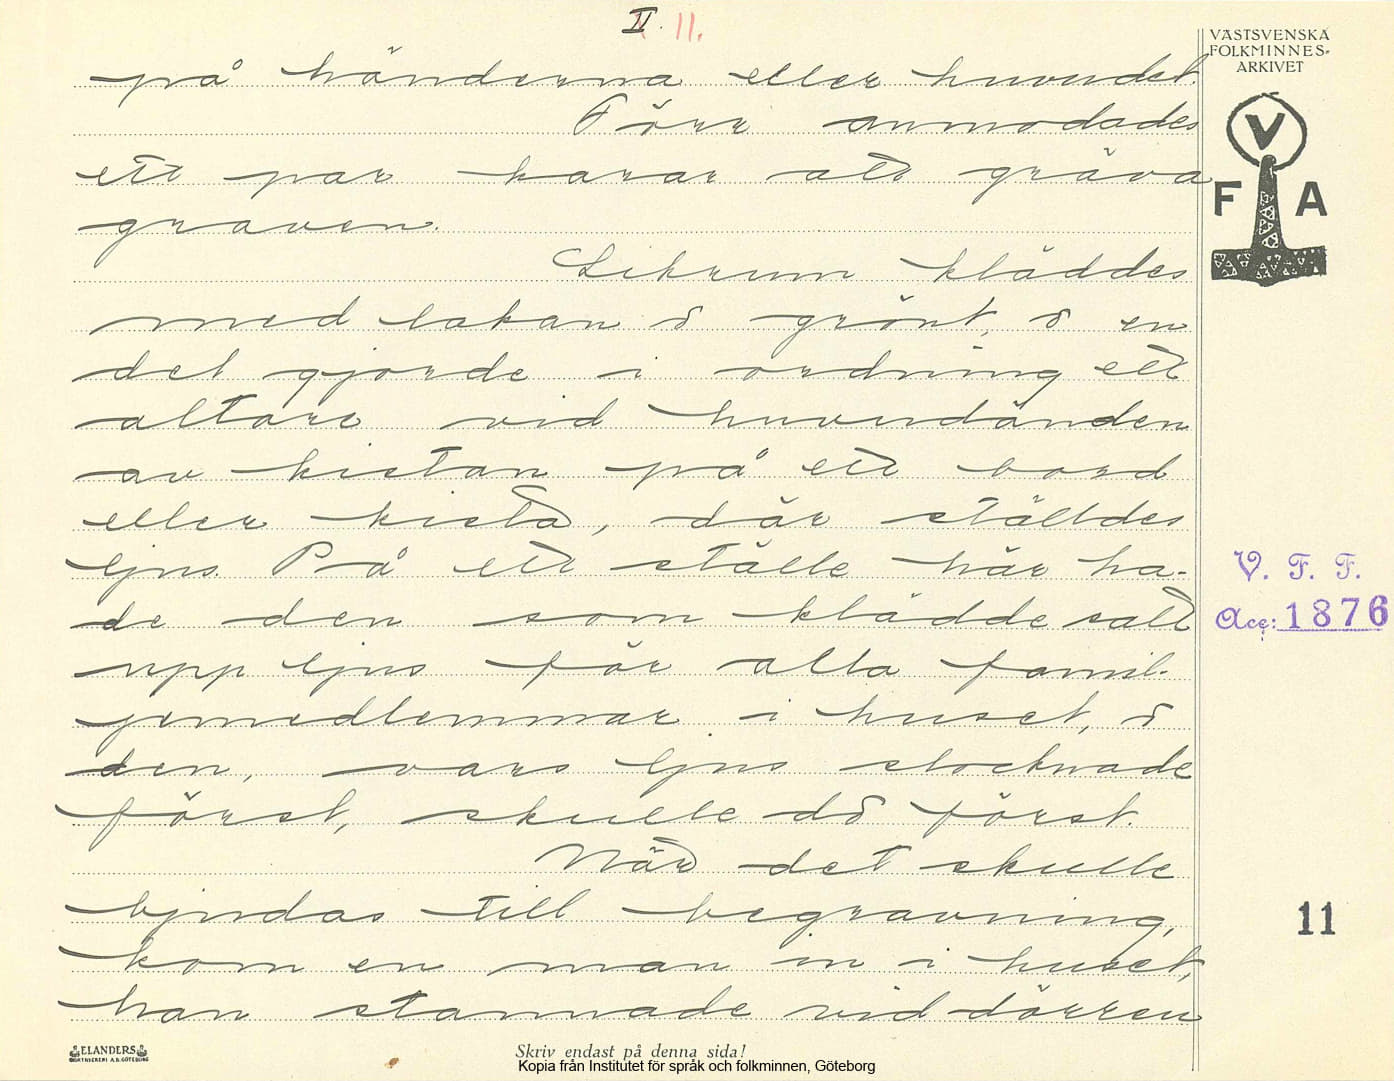 II. 11.
VÄSTSVENSKA
FOLKMINNES-
ARKIVET
V
F A
på händerna eller huvudet.
Förr anmodades
ett par karar att gräva
graven.
Likrum kläddes
med lakan o grönt, o en
del gjorde i ordning ett
altare vid huvudänden
av kistan på ett bord
eller kista, där ställdes
ljus. På ett ställe här ha-
de den som klädde satt
upp ljus för alla famil-
jemedlemmar i huset, o
den, vars ljus slocknade
först, skulle dö först.
När det skulle
bjudas till begravning,
kom en man in i huset,
han stannade vid dörren
V. F. F.
Acc: 1876
11
ELANDERS
Skriv endast på denna sida!
Kopia från Institutet för språk och folkminnen, Göteborg